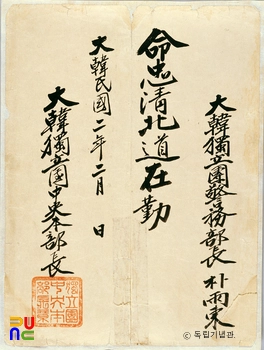 大韓獨立團警務部長 朴雨東
命忠淸北道在勤
大韓民國二年二月 日
大韓獨立團中央本部長
ⓒ 독립기념관